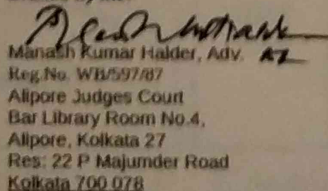 Manash Kumar Halder, Adv.
Reg.No. WB/597/87
Alipore Judges Court
Bar Library Room No.4,
Alipore, Kolkata 27
Res: 22 P Majumder Road
Kolkata 700 078